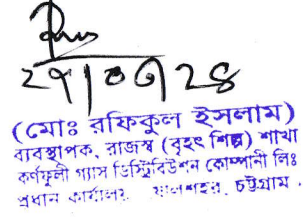 ২৭/০৩/২৪
(মোঃ রফিকুল ইসলাম)
ব্যবস্থাপক, রাজস্ব (বৃহৎ শিল্প) শাখা
কর্ণফুলী গ্যাস ডিস্ট্রিবিউশন কোম্পানী লিঃ
প্রধান কার্যালয়, ষোলশহর, চট্টগ্রাম।